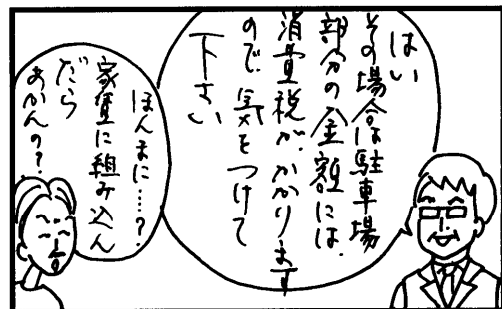 はい
その場合は駐車場
部分の金額には、
消費税が、かかります
ので、気をつけて
下さい
ほんまに……?
家賃に組み込ん
だら
あかんの?